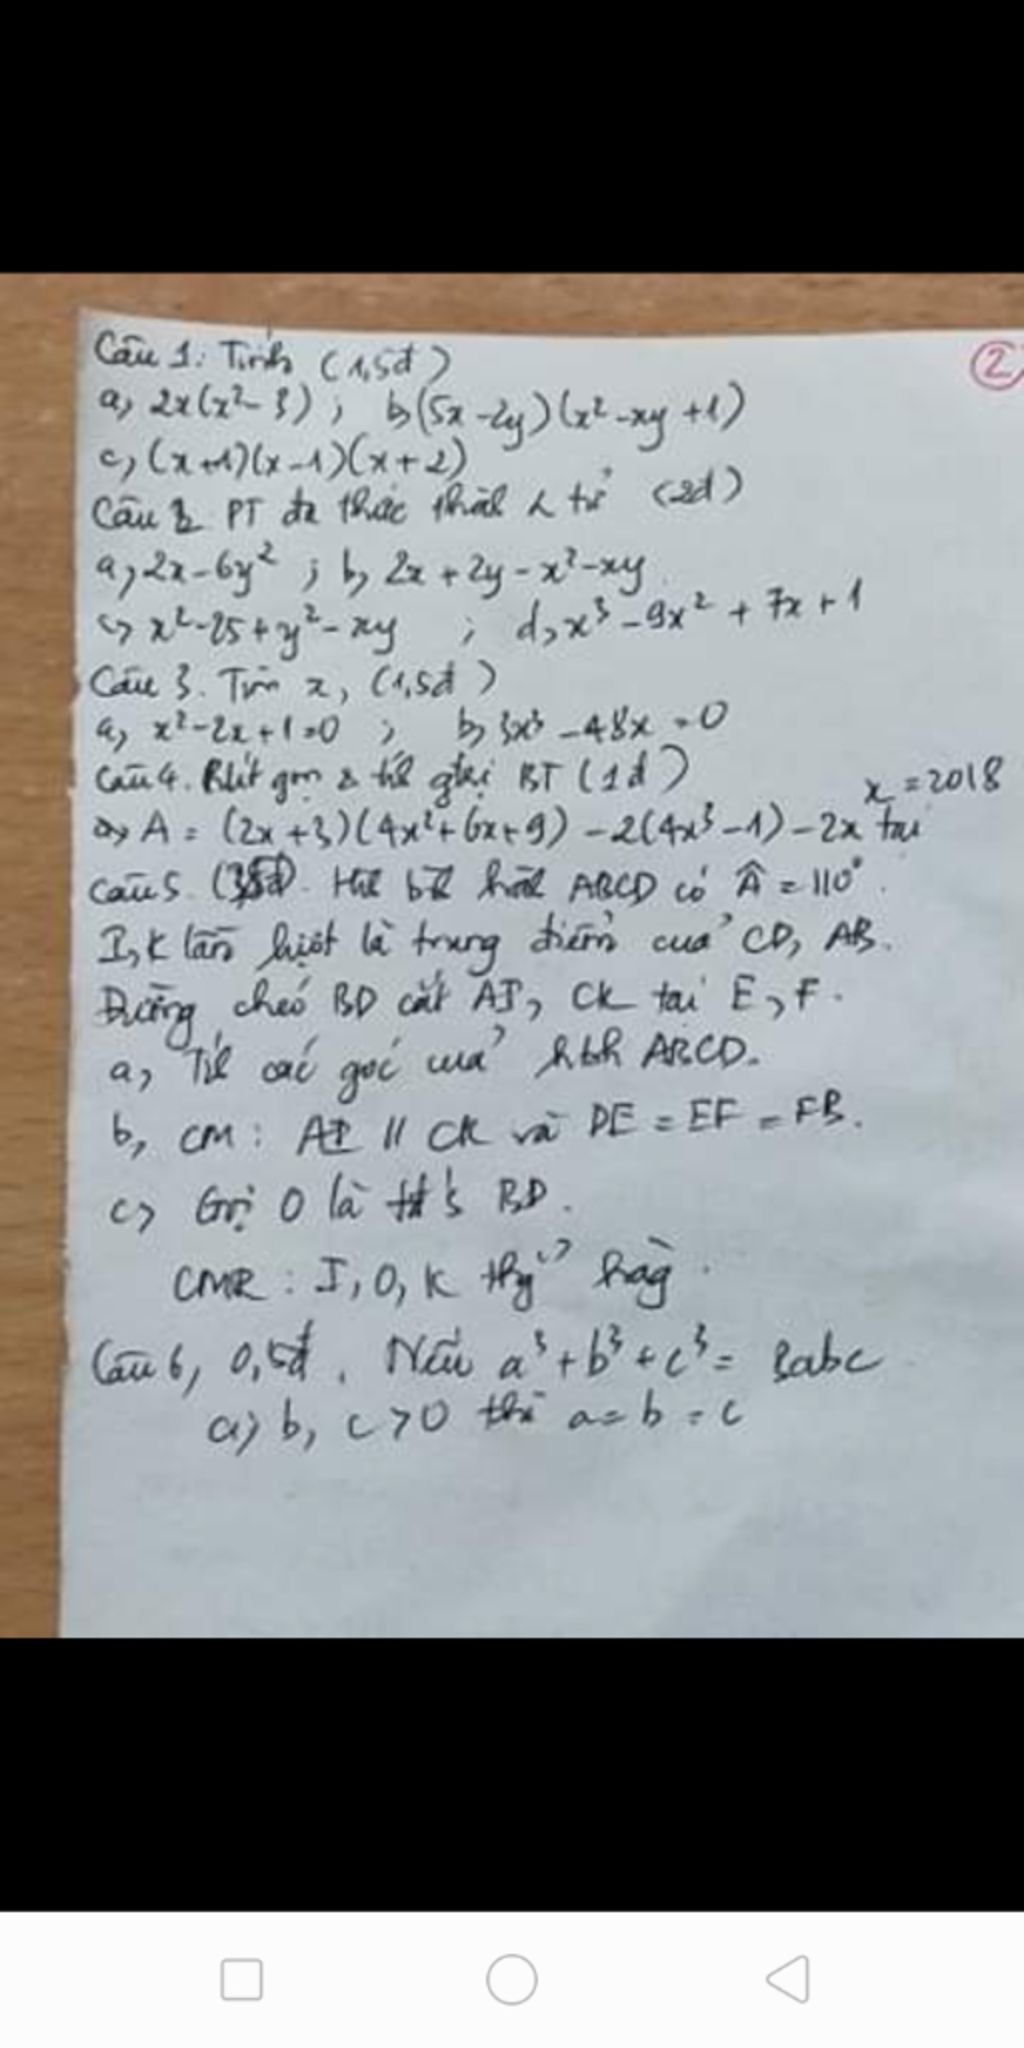 ②
Câu 1: Tính (1,5đ)
a, 2x(x²-3) ; b,(5x-2y)(x²-xy+1)
c, (x+1)(x-1)(x+2)
Câu 2. PT đa thức thàh tử (2đ)
a, 2x-6y² ; b, 2x+2y-x²-xy
c, x²-25+y²-xy ; d, x³-9x²+7x+1
Câu 3. Tìm x, (1,5đ)
a, x²-2x+1=0 ; b, 3x³-48x=0
Câu 4. Rút gọn & gtrị BT (1đ)
x=2018
A = (2x+3)(4x²+6x+9)-2(4x³-1)-2x tại
Câu 5. ABCD có Â = 110°.
I, K lần lượt là trung điểm của CD, AB.
Đường chéo BD cắt AI, CK tại E, F.
a, các góc của hbh ABCD.
b, CM: AI // CK và DE = EF = FB.
c, Gọi O là BD.
CMR: I, O, K
Câu 6, 0,5đ. Nếu a³+b³+c³= 3abc
a, b, c>0 thì a=b=c